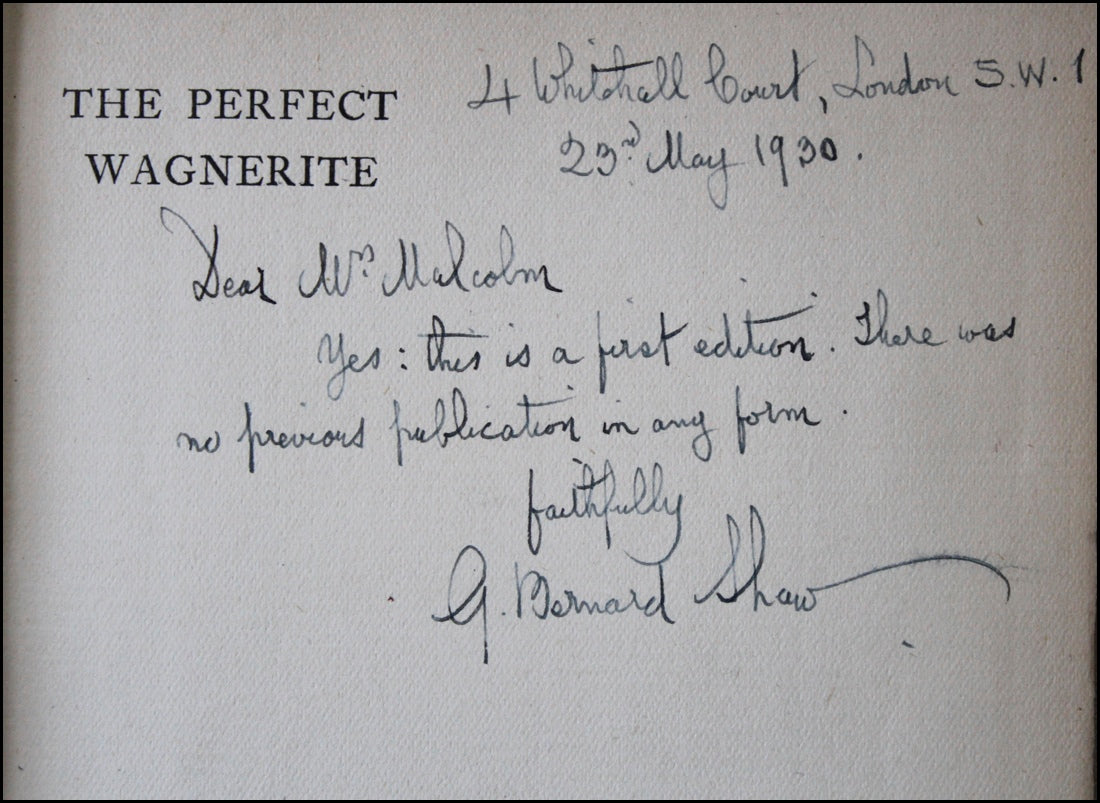 THE PERFECT
WAGNERITE
4 Whitehall Court, London S.W.1
23rd May 1930.
Dear Mrs Malcolm
Yes: this is a first edition. There was
no previous publication in any form.
faithfully
G. Bernard Shaw